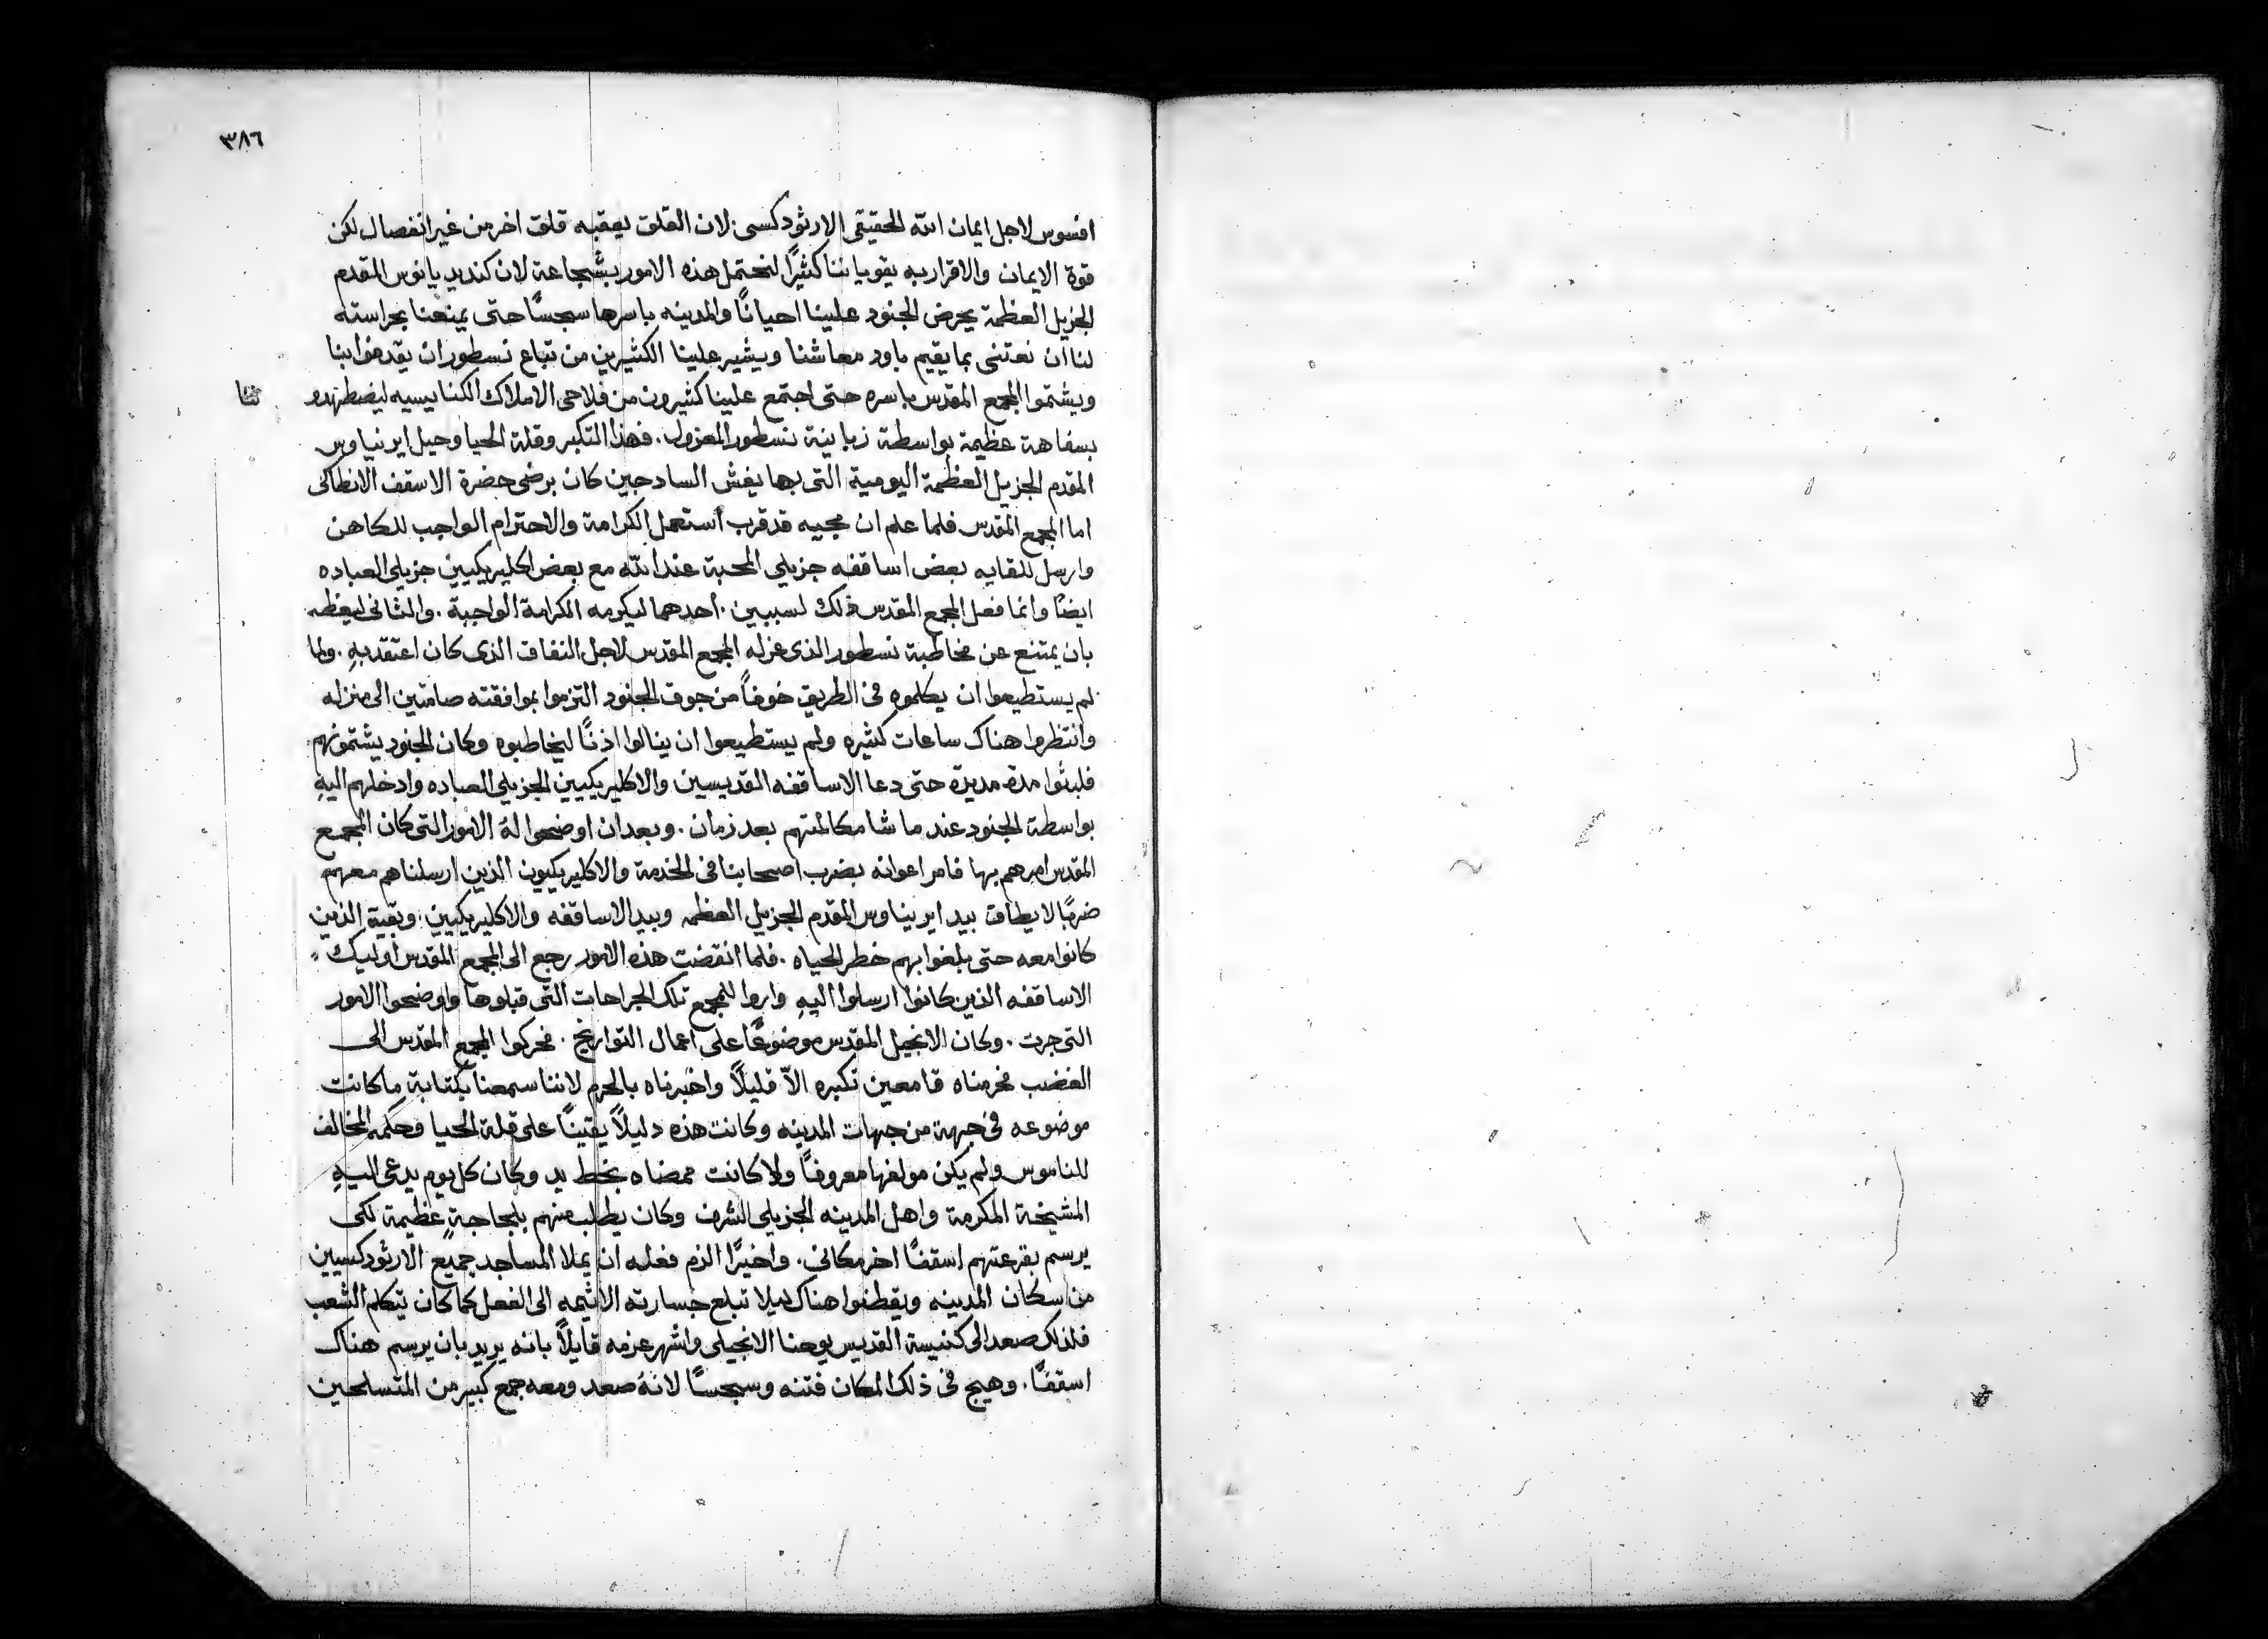 ٣٨٦
افسوس لاجل ايمان الله الحقيقي الارثودكسى لان القلق يعقبه قلق اخر من غير انفصال لكن
قوة الايمان والاقرار به يقوياننا كثيرًا لنحتمل هذه الامور بشجاعة لان كنديديانوس المقدم
الجزيل العظمة يحرض الجنود علينا احيانًا والمدينه باسرها سجسًا حتى يمنعنا بحراسته
لنا ان نعتنى بما يقيم باود معاشنا ويشير علينا الكثيرين من تباع نسطور ان يقدفوا بنا
ويشتموا المجمع المقدس باسره حتى اجتمع علينا كثيرون من فلاحى الاملاك الكنايسيه ليضطهدو
ننا
بسفاهة عظيمة بواسطة زبانية نسطور المعزول. فهذا التكبر وقلة الحيا وحيل ايرنياوس
المقدم الجزيل العظمة اليومية التى بها يغش السادجين كان برضى حضرة الاسقف الانطاكى
اما المجمع المقدس فلما علم ان مجيه قد قرب استعمل الكرامة والاحترام الواجب للكاهن
وارسل للقايه بعض اساقفه جزيلي المحبة عند الله مع بعض اكليريكيين جزيلى العباده
ايضًا وانما فعل المجمع المقدس ذلك لسببين. احدهما ليكرمه الكرامة الواجبة. والثانى ليعظه
بان يمتنع عن مخاطبة نسطور الذى عزله المجمع المقدس لاجل النفاق الذى كان اعتقد بهِ. ولما
لم يستطيعوا ان يكلموه في الطريق خوفاً من جوق الجنود التزموا بموافقته صامتين الى منزله
وانتظروا هناك ساعات كثيره ولم يستطيعوا ان ينالوا اذنًا ليخاطبوه وكان الجنود يشتمونهم
فلبثوا مدة مديدة حتى دعا الاساقفه القديسين والاكليريكيين الجزيلى العباده وادخلهم اليهِ
بواسطة الجنود عند ما شا مكالمتهم بعد زمان. وبعد ان اوضحوا لهُ الامور التى كان المجمع
المقدس امرهم بها فامر اعوانه بضرب اصحابنا فى الخدمة والاكليريكيون الذين ارسلناهم معهم
ضربًا لا يطاق بيد ايريناوس المقدم الجزيل العظمه وبيد الاساقفه والاكليريكيين وبقية الذين
كانوا معه حتى بلغوا بهم خطر الحياه. فلما انقضت هذه الامور رجع الى المجمع المقدس اوليك
الاساقفه الذين كانوا ارسلوا اليهِ واروا المجمع تلك الجراحات التى قبلوها واوضحوا الامور
التى جرت. وكان الانجيل المقدس موضوعًا على اعمال التواريخ. فحركوا المجمع المقدس الى
الغضب فحرمناه قامعين تكبره الاّ قليلاً واخبرناه بالحرم لاننا سمعنا بكتابة ما كانت
موضوعه في جهة من جهات المدينه وكانت هذه دليلاً يقينًا على قلة الحيا وحكمه المخالف
للناموس ولم يكن مولفها معروفًا ولا كانت ممضاه بخط يد وكان كل يوم يدعى اليهِ
المشيخة المكرمة واهل المدينه الجزيلي الشرف وكان يطلب منهم بلجاجةٍ عظيمة لكى
يرسم بقرعتهم اسقفًا اخر مكانى. واخيرًا الزم فعله ان يملا المساجد جميع الارثودكسيين
من سكان المدينه ويقطنوا هناك ليلا تبلع جسارته الاثيمه الى الفعل كما كان يتكلم الشعب
فلذلك صعد الى كنيسة القديس يوحنا الانجيلى واشهر عزمه قايلاً بانه يريد بان يرسم هناك
اسقفًا. وهيج فى ذلك المكان فتنه وسجسًا لانهُ صعد ومعه جمع كبير من المتسلحين